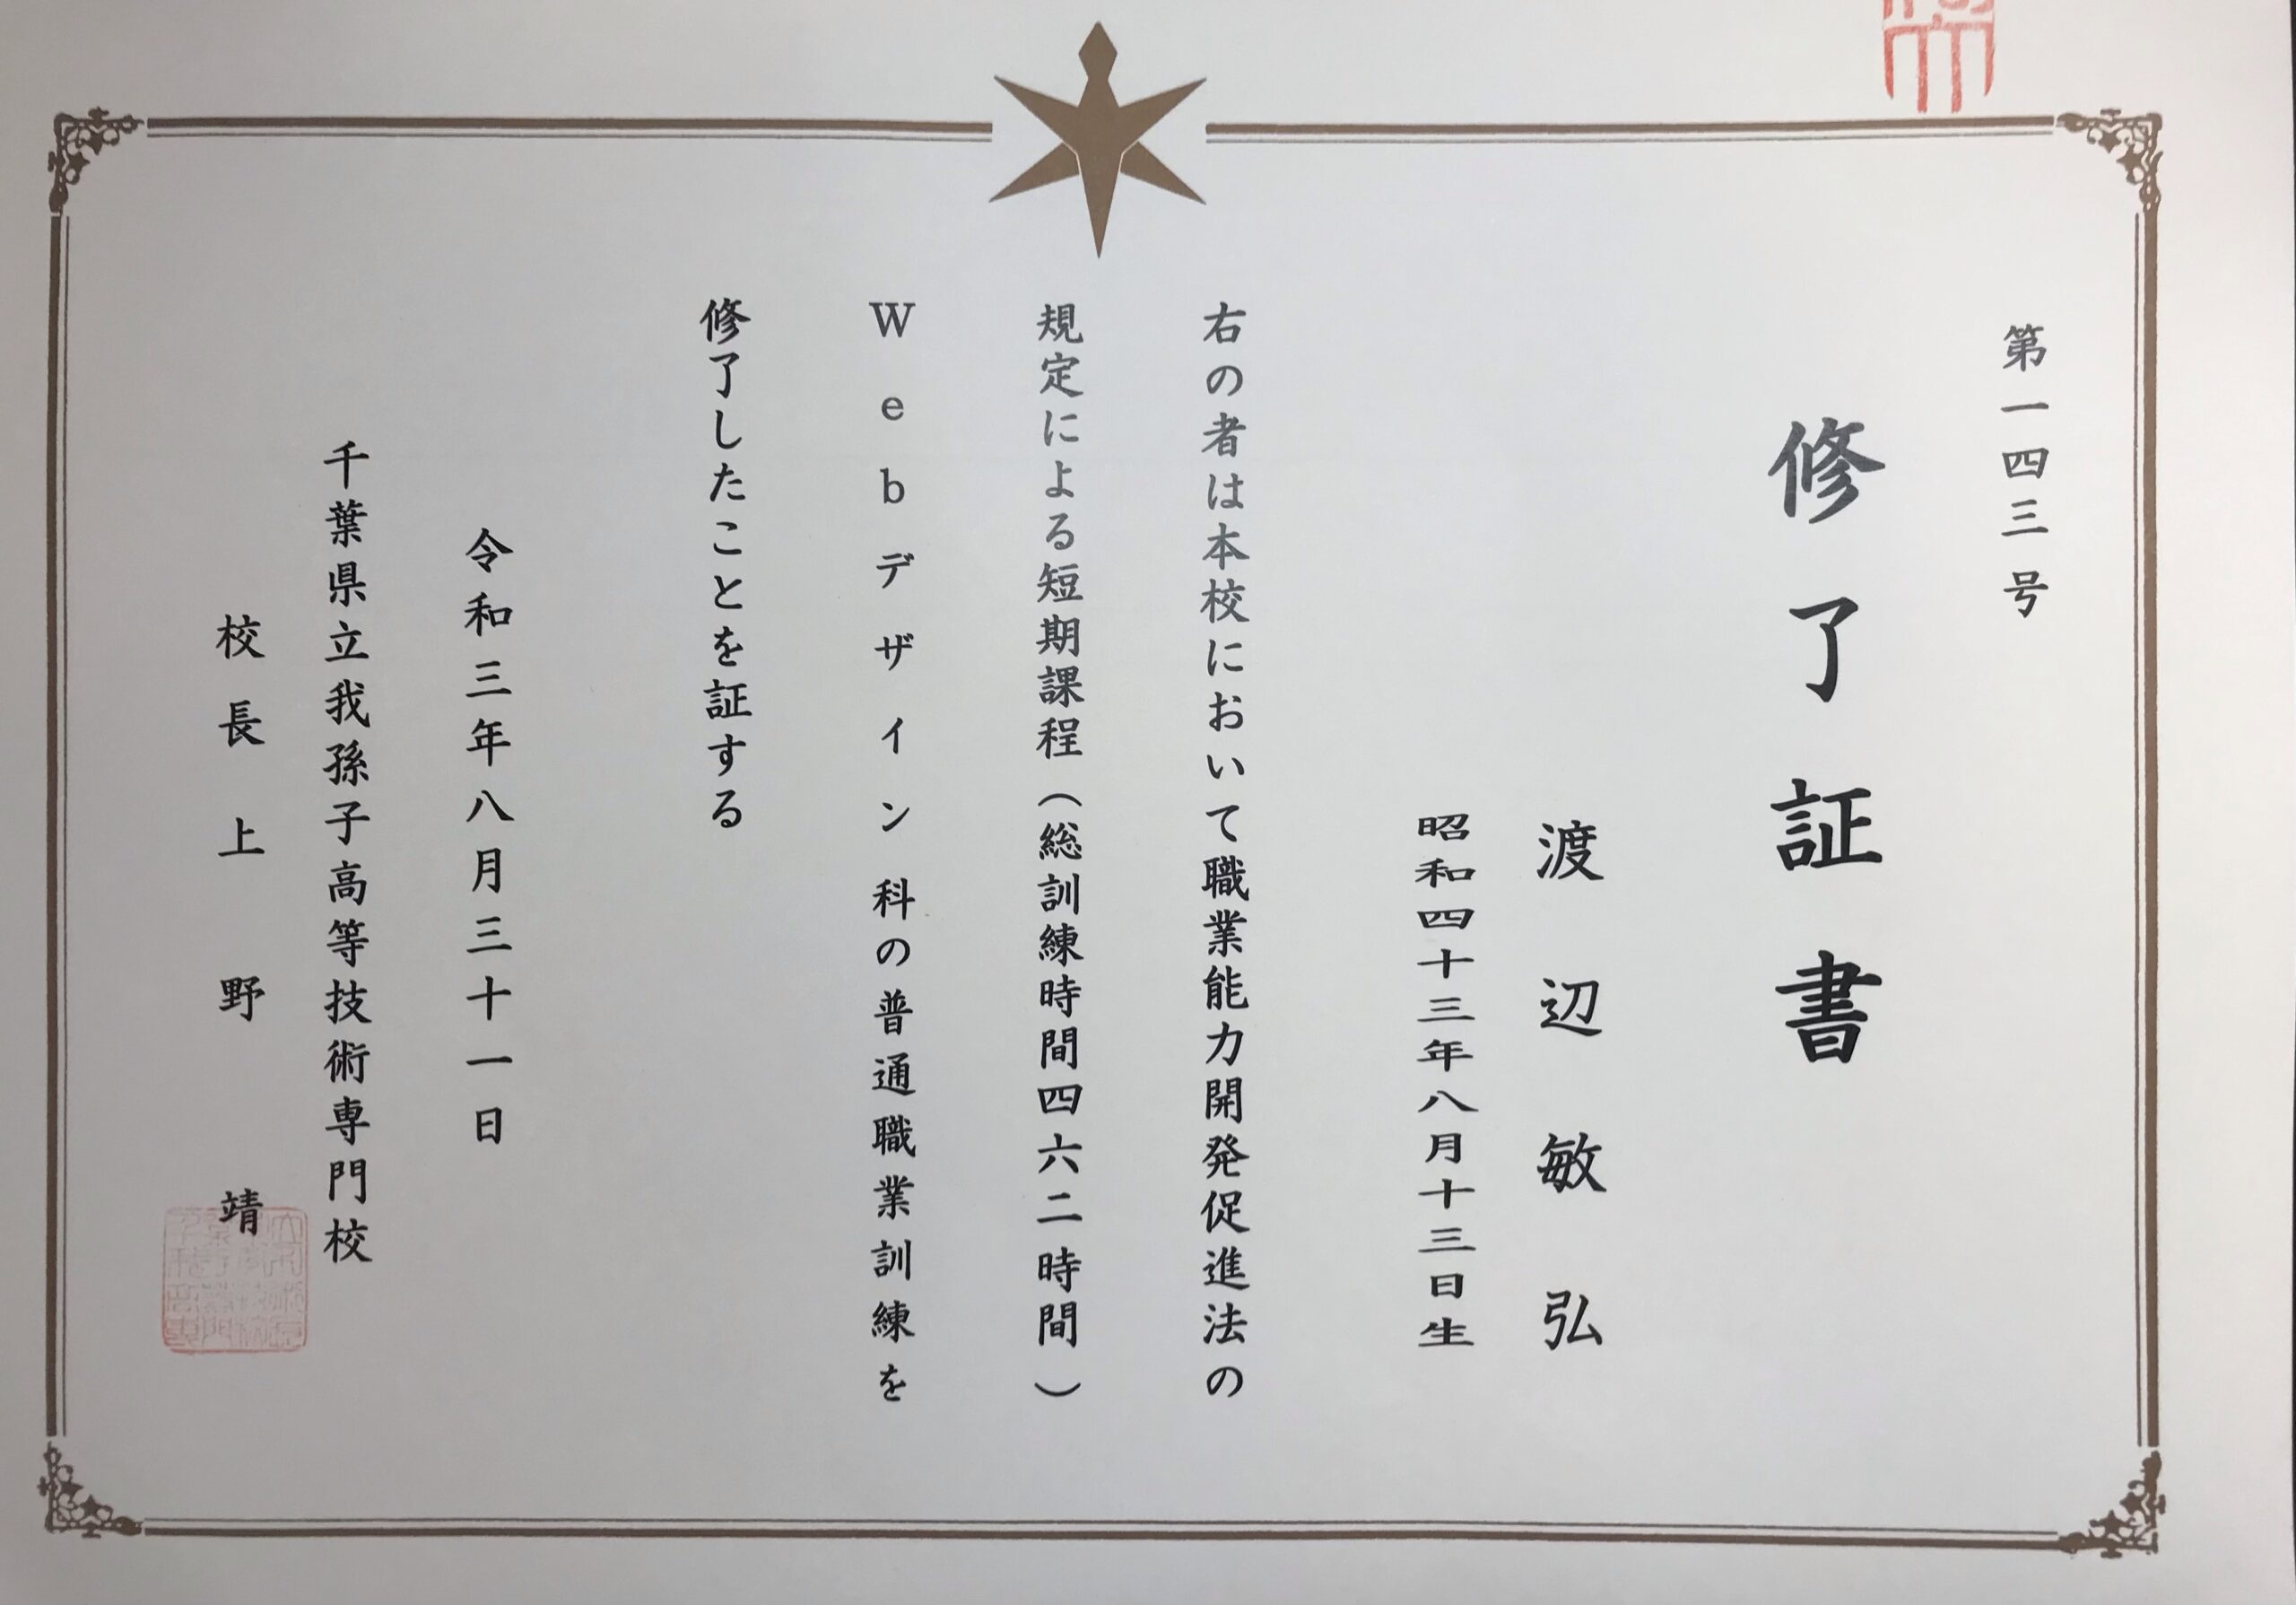 第一四三号
修了証書
渡辺敏弘
昭和四十三年八月十三日生
右の者は本校において職業能力開発促進法の
規定による短期課程(総訓練時間四六二時間)
Webデザイン科の普通職業訓練を
修了したことを証する
令和三年八月三十一日
千葉県立我孫子高等技術専門校
校長上野靖